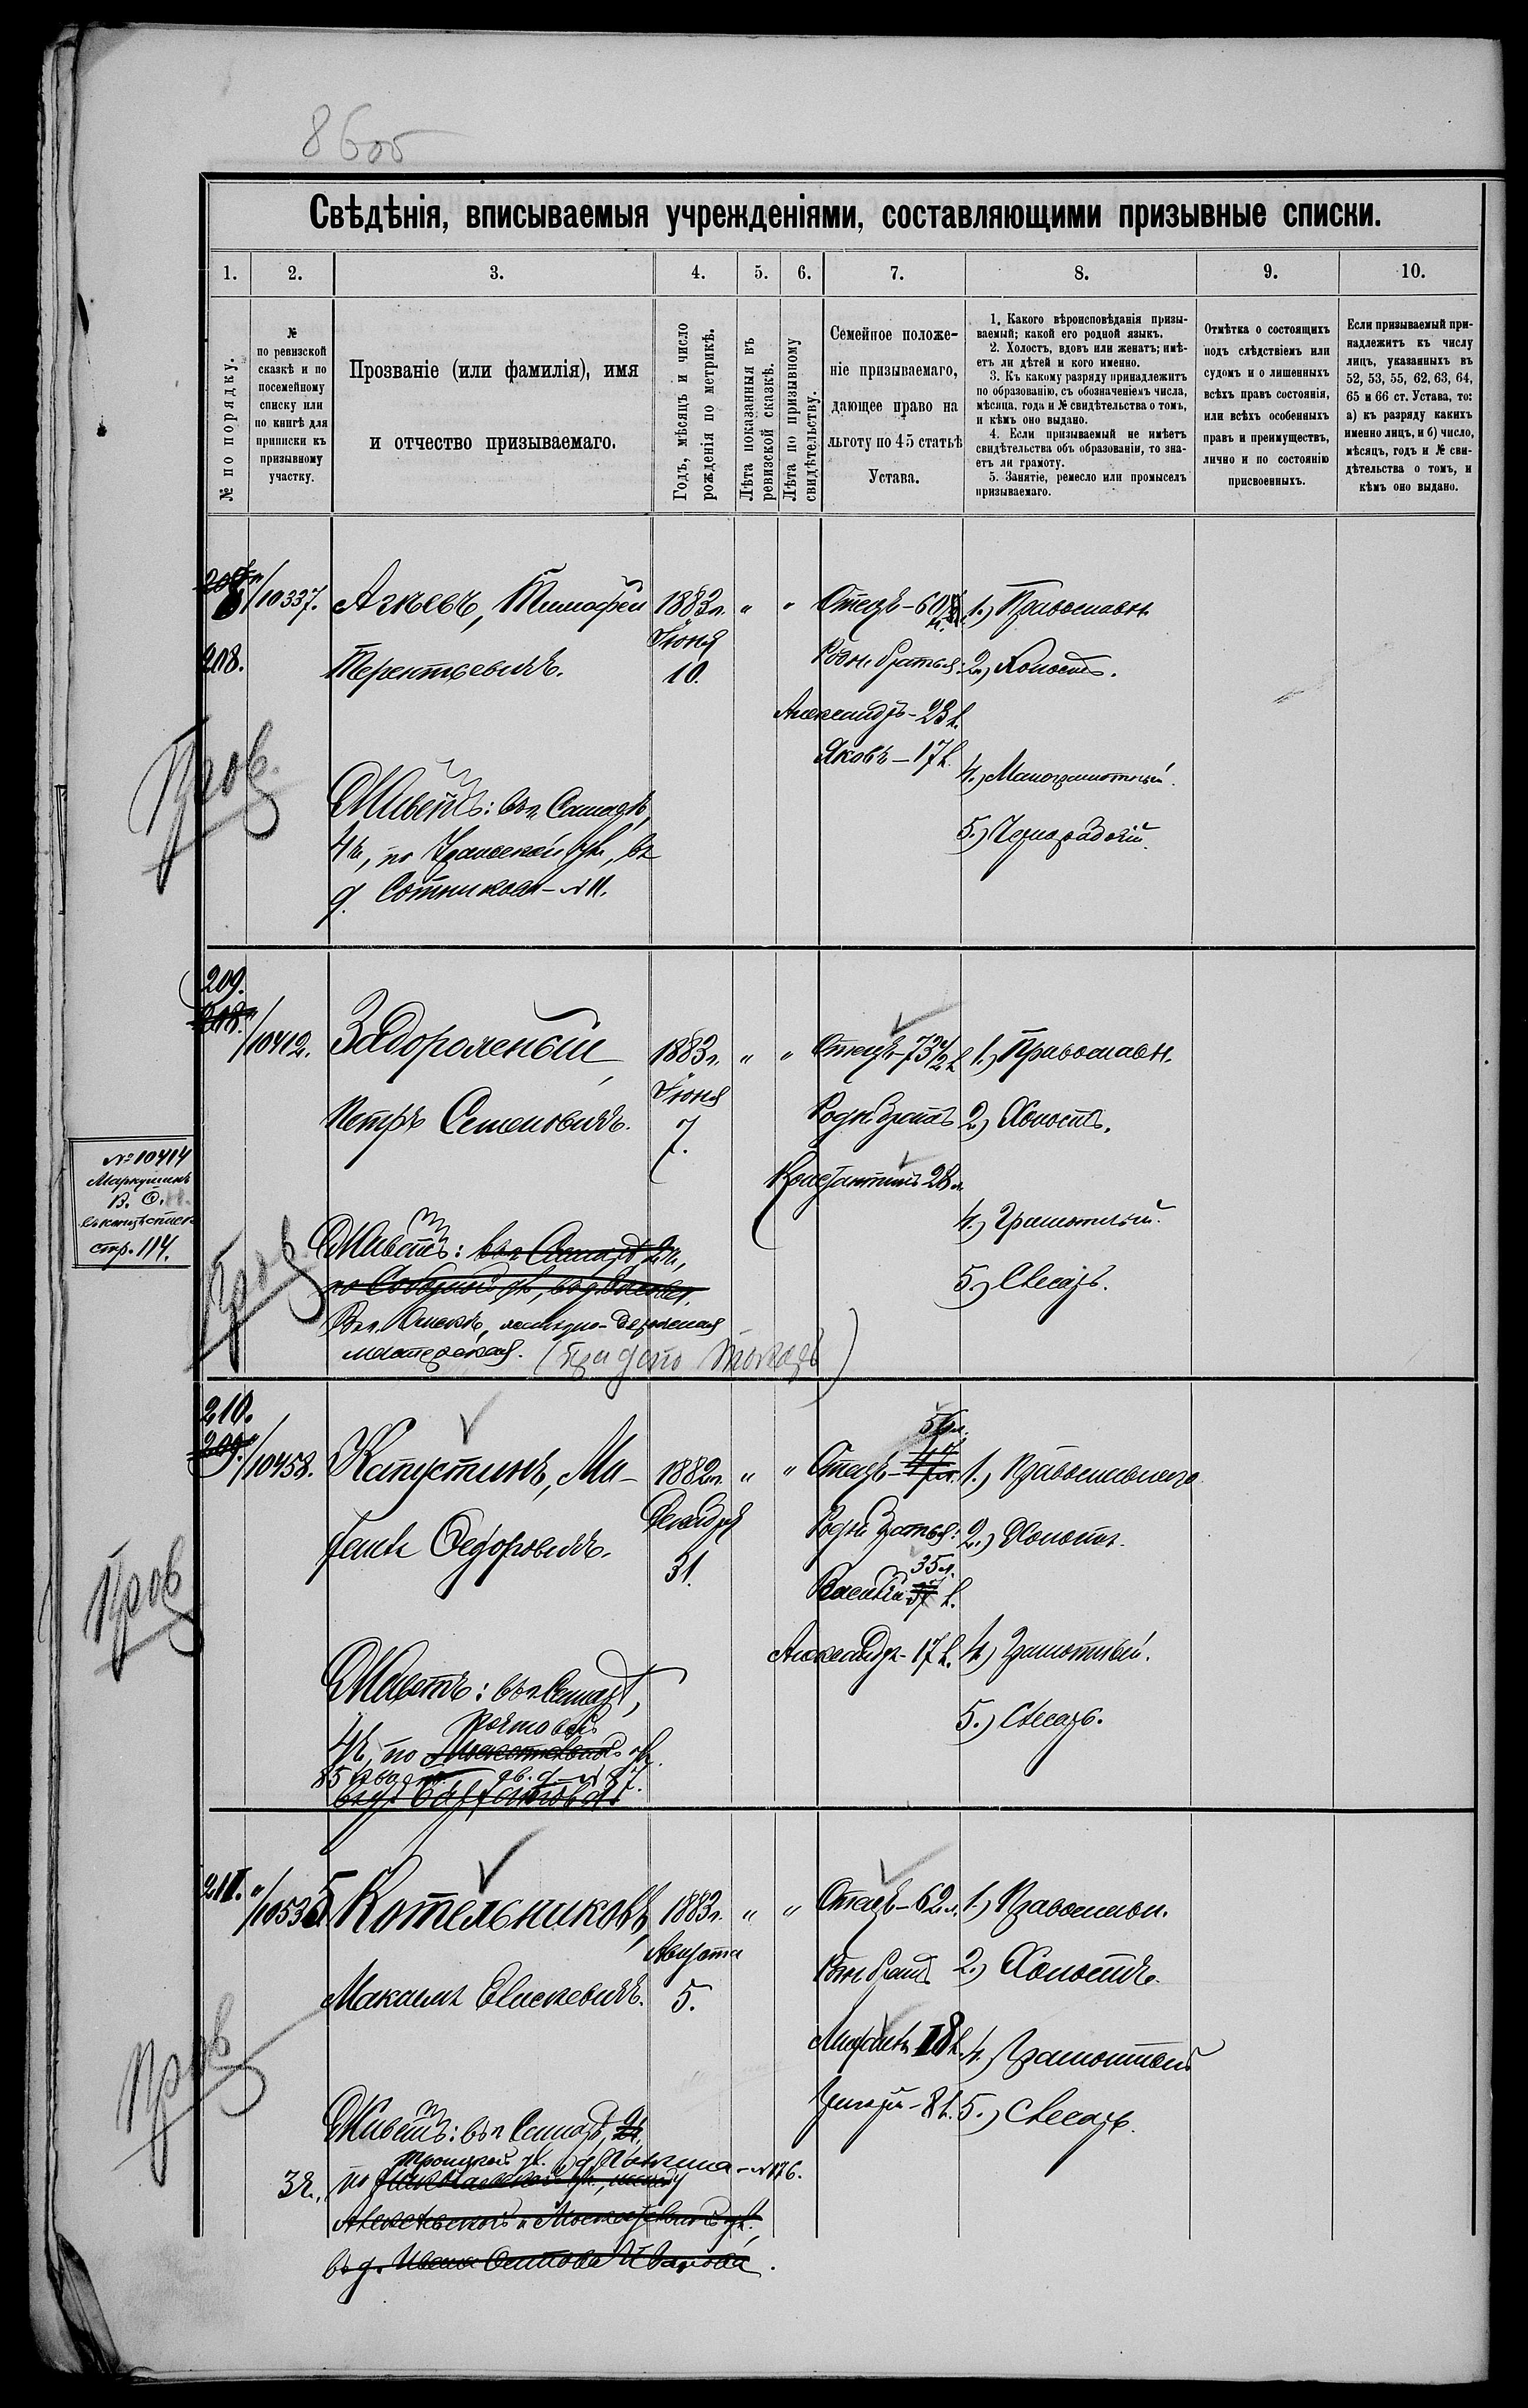 86об
Свѣдѣнія, вписываемыя учрежденіями, составляющими призывные списки.
1. 2. 3. 4. 5. 6. 7. 8. 9. 10.
№ по порядку.
№
по ревизской
сказкѣ и по
посемейному
списку или
по книгѣ для
приписки къ
призывному
участку.
Прозваніе (или фамилія), имя
и отчество призываемаго.
Годъ, мѣсяцъ и число
рожденія по метрикѣ.
Лѣта показанныя въ
ревизской сказкѣ.
Лѣта по призывному
свидѣтельству.
Семейное положе-
ніе призываемаго,
дающее право на
льготу по 45 статьѣ
Устава.
1. Какого вѣроисповѣданія призы-
ваемый; какой его родной языкъ.
2. Холостъ, вдовъ или женатъ; имѣ-
етъ ли дѣтей и кого именно.
3. Къ какому разряду принадлежитъ
по образованію, съ обозначеніемъ числа,
мѣсяца, года и № свидѣтельства о томъ,
и кѣмъ оно выдано.
4. Если призываемый не имѣетъ
свидѣтельства объ образованіи, то зна-
етъ ли грамоту.
5. Занятіе, ремесло или промыселъ
призываемаго.
Отмѣтка о состоящихъ
подъ слѣдствіемъ или
судомъ и о лишенныхъ
всѣхъ правъ состоянія,
или всѣхъ особенныхъ
правъ и преимуществъ,
лично и по состоянію
присвоенныхъ.
Если призываемый при-
надлежитъ къ числу
лицъ, указанныхъ въ
52, 53, 55, 62, 63, 64,
65 и 66 ст. Устава, то:
а) къ разряду какихъ
именно лицъ, и б) число,
мѣсяцъ, годъ и № сви-
дѣтельства о томъ, и
кѣмъ оно выдано.
"/10337. Агѣевъ, Тимофей 1883г. " " Отецъ-60 1.) Православн.
208. Терентьевичъ. Іюня 10. Родн. братья: 2.) Холостъ.
Александръ-23 л.
Яковъ-17 л. 4.) Малограмотный.
Пров.
Живетъ: въ г. Самарѣ,
4ч., по Уральской ул., въ
д. Сотникова-№ 11.
5.) Чернорабочій.
209.
208.
"/10412. Задорожный, 1883г. " " Отецъ-73 1/2 л. 1.) Православн.
Петръ Семеновичъ. Іюня 7. Родн. братъ 2.) Холостъ.
Константинъ 28л.
4.) Грамотный.
5.) Слесарь.
№ 10414
Маркушинъ
В. Ѳ.
въ концѣ списка
стр. 114.
Пров
Живетъ: въ г. Самарѣ, 2ч.,
по Соборной ул., въ д.
Въ г. Омскѣ, желѣзно-дорожная
мастерская. (при депо токарь)
210.
209.
"/10458. Капустинъ, Ми- 1882г. " " Отецъ- 1.) Православнаго
хаилъ Ѳедоровичъ. Декабря 31. Родн. братья: 2.) Холостъ.
35л.
Василій 37 л.
Александръ-17 л. 4.) Грамотный.
5.) Слесарь.
Пров
Живетъ: въ г. Самарѣ,
Почтовой
4ч., по Москательной ул.
85 кварт. дв. д. № 87.
211. "/10535 Котельниковъ, 1883г. " " Отецъ-62л. 1.) Православн.
Максимъ Елисеевичъ. Августа 5. Родн. братъ 2.) Холостъ.
18 л. 4.) Грамотный
Григорій-8 л. 5.) Слесарь.
Пров
Живетъ: въ г. Самарѣ, 2ч.,
Троицкой ул. д. № 176.
3ч., по Николаевской ул., между
Алексѣевской и Москательной ул.
въ д. Ивана Осипова